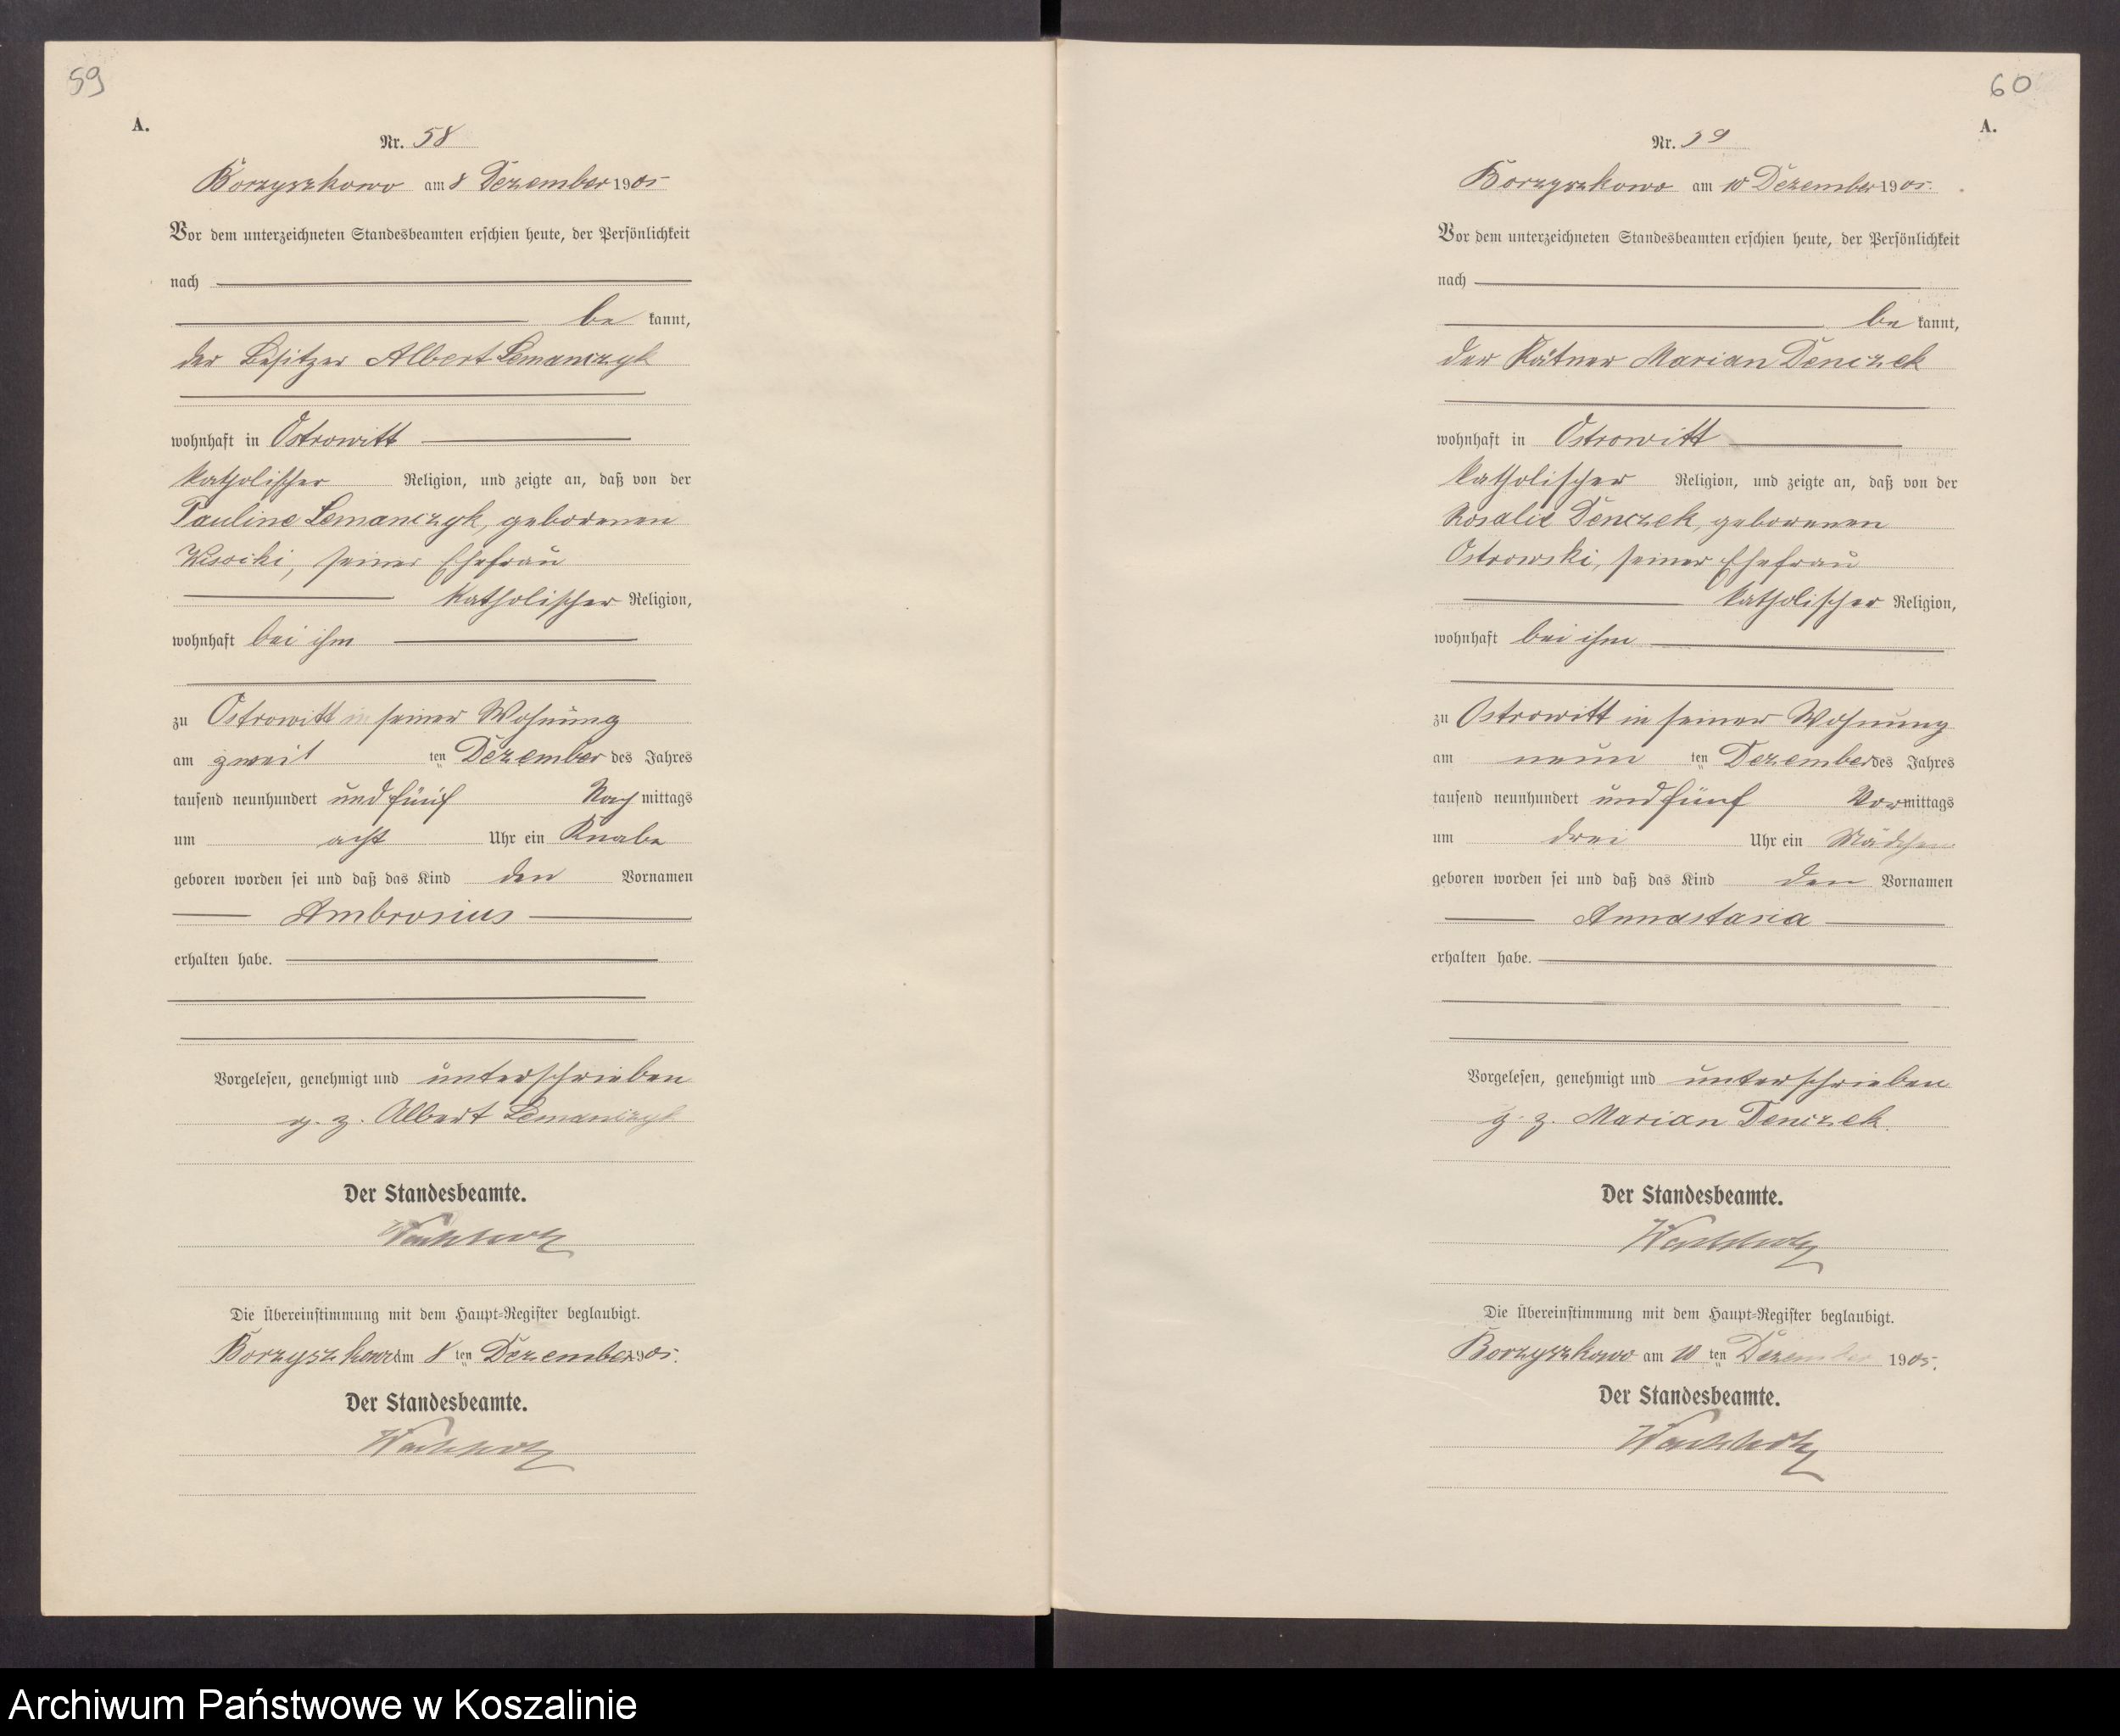 59
A.
Nr. 58
Borzyszkowo am 8 Dezember 1905
Vor dem unterzeichneten Standesbeamten erschien heute, der Persönlichkeit
nach
be kannt,
der Besitzer Albert Lemanczyk
wohnhaft in Ostrowitt
katholischer Religion, und zeigte an, daß von der
Pauline Lemanczyk, geborenen
Wisocki, seiner Ehefrau
katholischer Religion,
wohnhaft bei ihm
zu Ostrowitt in seiner Wohnung
am zweit ten Dezember des Jahres
tausend neunhundert und fünf Nach mittags
um acht Uhr ein Knabe
geboren worden sei und daß das Kind den Vornamen
Ambrosius
erhalten habe.
Vorgelesen, genehmigt und unterschrieben
g. z. Albert Lemanczyk
Der Standesbeamte.
Die Übereinstimmung mit dem Haupt-Register beglaubigt.
Borzyszkowo am 8 ten Dezember 1905.
Der Standesbeamte.
60
A.
Nr. 59
Borzyszkowo am 10 Dezember 1905.
Vor dem unterzeichneten Standesbeamten erschien heute, der Persönlichkeit
nach
be kannt,
der Kätner Marian Denczek
wohnhaft in Ostrowitt
katholischer Religion, und zeigte an, daß von der
Rosalie Denczek, geborenen
Ostrowski, seiner Ehefrau
katholischer Religion,
wohnhaft bei ihm
zu Ostrowitt in seiner Wohnung
am neun ten Dezember des Jahres
tausend neunhundert und fünf Vor mittags
um drei Uhr ein Mädchen
geboren worden sei und daß das Kind den Vornamen
Annastasia
erhalten habe.
Vorgelesen, genehmigt und unterschrieben
g. z. Marian Denczek.
Der Standesbeamte.
Die Übereinstimmung mit dem Haupt-Register beglaubigt.
Borzyszkowo am 10 ten Dezember 1905.
Der Standesbeamte.
Archiwum Państwowe w Koszalinie